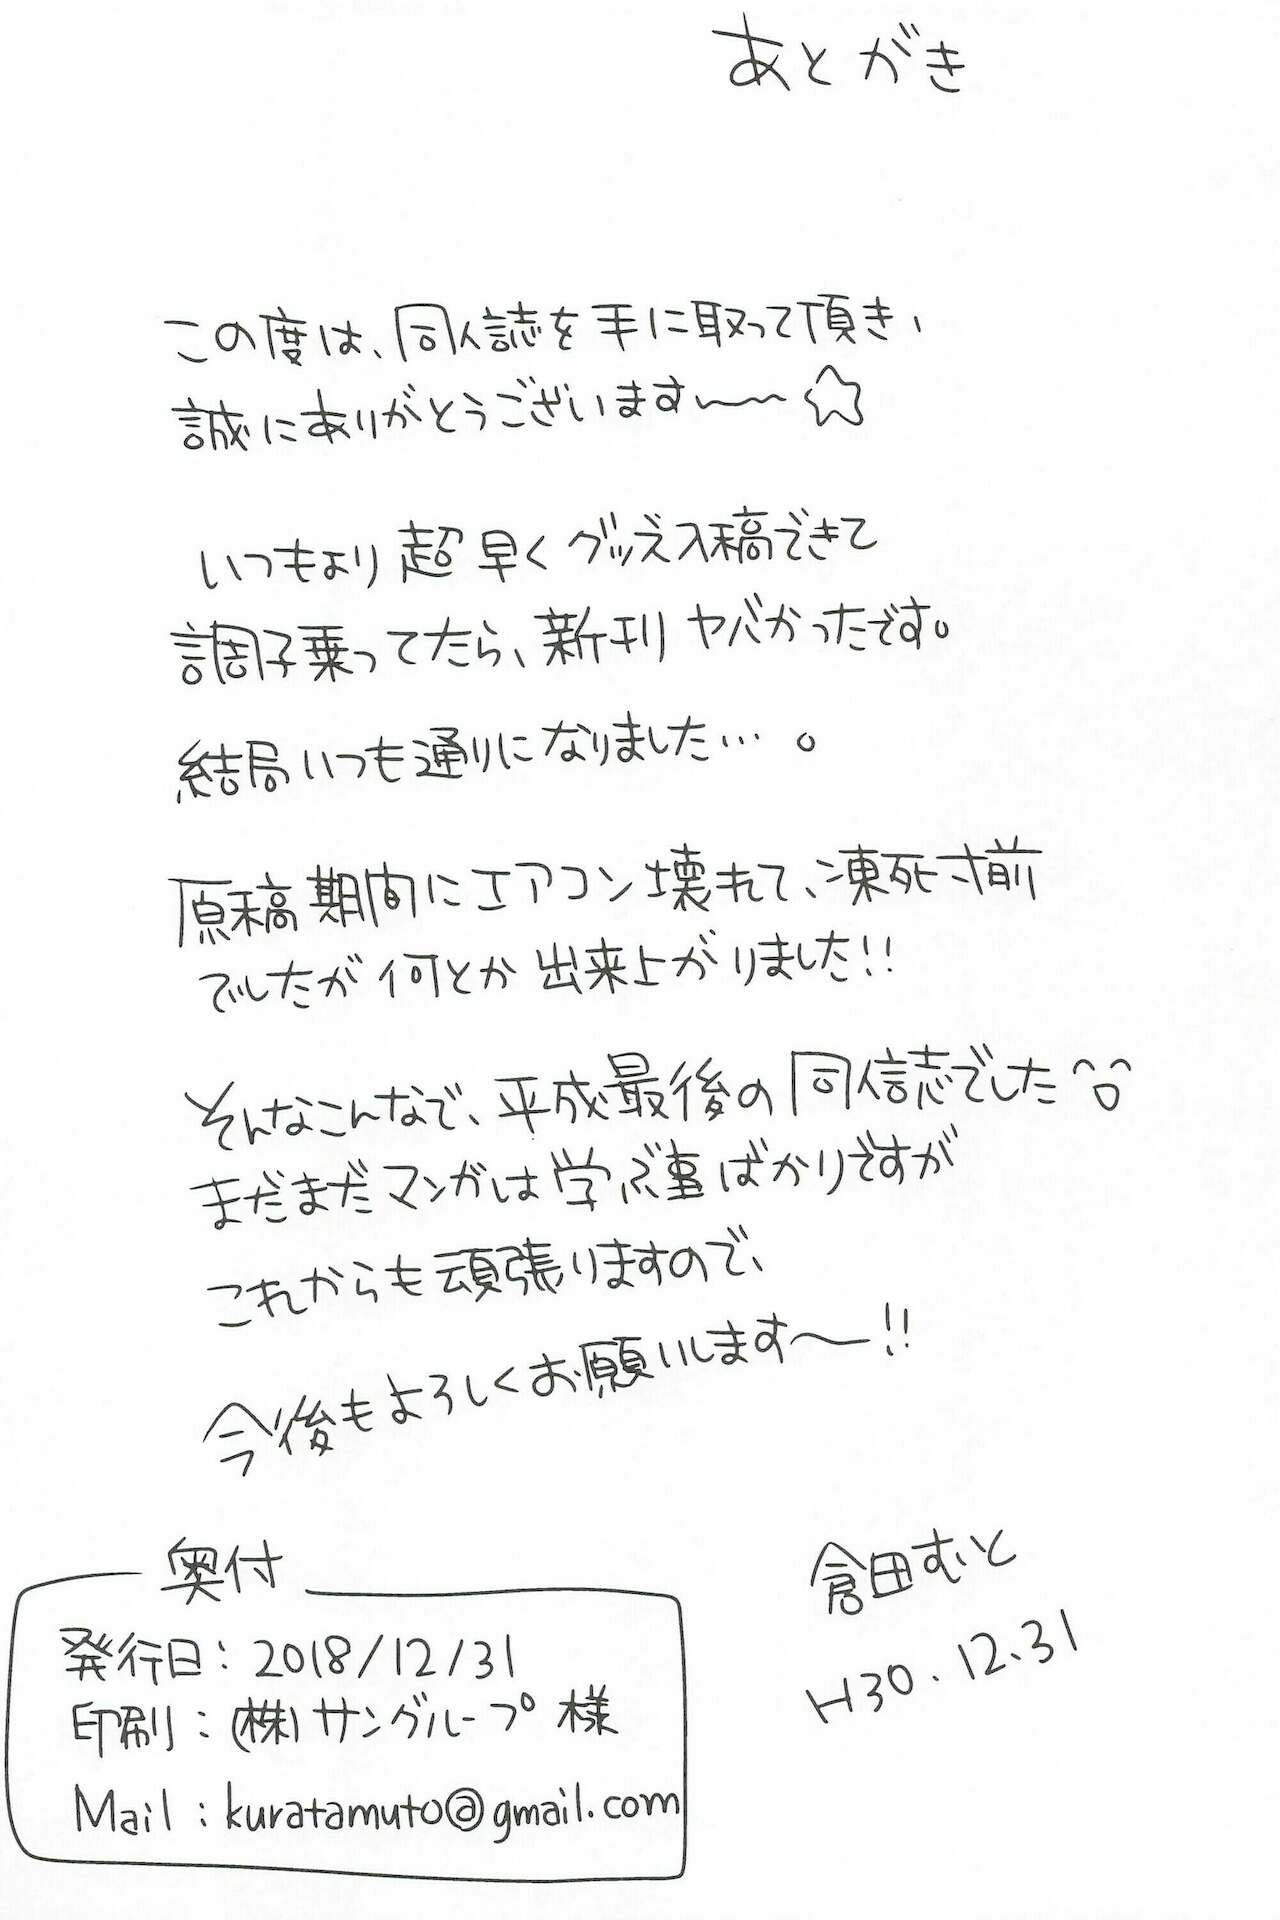 あとがき
この度は、同人誌を手に取って頂き、
誠にありがとうございます〜〜☆
いつもより超早くグッズ入稿できて
調子乗ってたら、新刊ヤバかったです。
結局いつも通りになりました…。
原稿期間にエアコン壊れて、凍死寸前
でしたが何とか出来上がりました!!
そんなこんなで、平成最後の同信志でした^o^
まだまだマンガは学ぶ事ばかりですが
これからも頑張りますので、
今後もよろしくお願いします〜!!
倉田むと
H30.12.31
奥付
発行日:2018/12/31
印刷:(株)サングループ様
Mail:kuratamuto@gmail.com